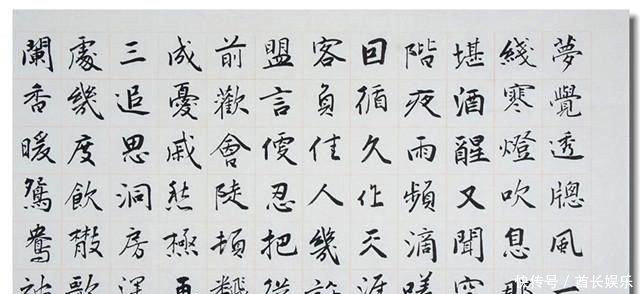 夢覺透牕風
綫寒燈吹息那
堪酒醒又聞空
階夜雨頻滴嗟
因循久作天涯
客負佳人幾許
盟言便忍把從
前歡會陡頓翻
成憂戚愁極再
三追思洞房深
處幾度飲散歌
闌香暖鴛鴦被
快传号／酋长娱乐